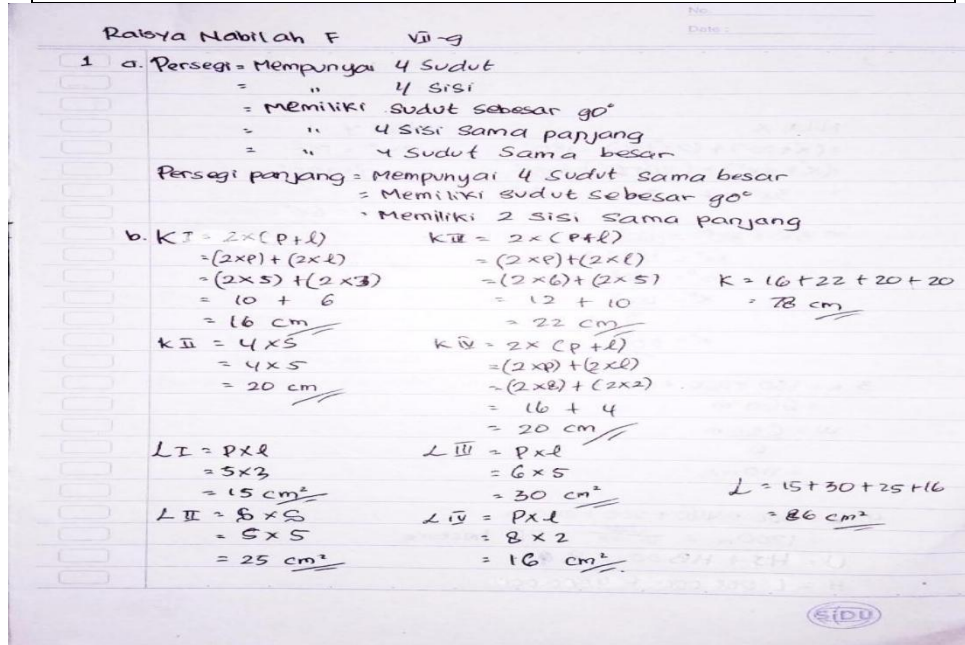 No.
Date :
Raisya Nabilah F VII-g
1 a. Persegi = Mempunyai 4 Sudut
= " 4 sisi
= Memiliki sudut sebesar 90°
= " 4 sisi sama panjang
= " 4 sudut sama besar
Persegi panjang = Mempunyai 4 sudut sama besar
= Memiliki sudut sebesar 90°
= Memiliki 2 sisi sama panjang
b. K I = 2×(P+l)
= (2×P) + (2×l)
= (2×5) + (2×3)
= 10 + 6
= 16 cm
K II = 4×S
= 4×5
= 20 cm
K III = 2×(P+l)
= (2×P)+(2×l)
= (2×6)+(2×5)
= 12 + 10
= 22 cm
K IV = 2×(P+l)
= (2×P)+(2×l)
= (2×8)+(2×2)
= 16 + 4
= 20 cm
K = 16+22+20+20
= 78 cm
L I = P×l
= 5×3
= 15 cm²
L II = S×S
= 5×5
= 25 cm²
L III = P×l
= 6×5
= 30 cm²
L IV = P×l
= 8×2
= 16 cm²
L = 15+30+25+16
= 86 cm²
SIDU